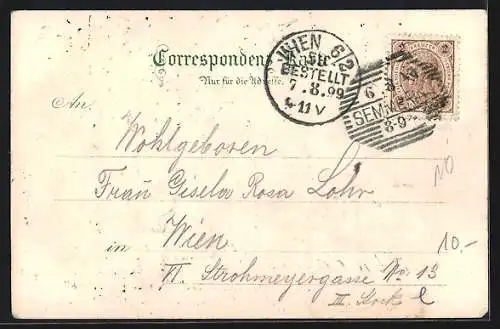 Correspondenz-Karte
Nur für die Adresse.
WIEN 6/2
BESTELLT
7.8.99
2
6.8
SEM
8-9
An
Wohlgeboren
Frau Gisela Rosa Lohr
in Wien
10.-
VI. Strohmeyergasse No. 13
III. Stock